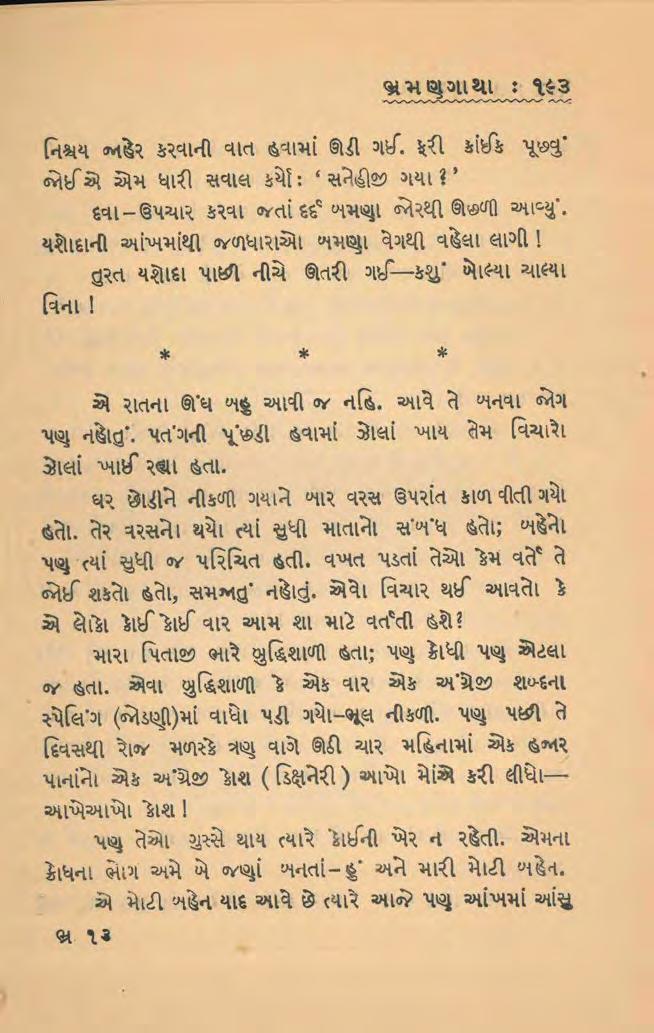 ભ્રમણગાથા : ૧૯૩
નિશ્ચય જાહેર કરવાની વાત હવામાં ઊડી ગઈ. ફરી કાંઈક પૂછવું
જોઈએ એમ ધારી સવાલ કર્યો: ‘સનેહીજી ગયા ?’
દવા–ઉપચાર કરવા જતાં દર્દ બમણા જોરથી ઊછળી આવ્યું.
યશોદાની આંખમાંથી જળધારાઓ બમણા વેગથી વહેલા લાગી !
તુરત યશોદા પાછી નીચે ઊતરી ગઈ—કશું બોલ્યા ચાલ્યા
વિના !
* * *
એ રાતના ઊંઘ બહુ આવી જ નહિ. આવે તે બનવા જોગ
પણ નહોતું. પતંગની પૂંછડી હવામાં ઝોલાં ખાય તેમ વિચારો
ઝોલાં ખાઈ રહ્યા હતા.
ઘર છોડીને નીકળી ગયાને બાર વરસ ઉપરાંત કાળ વીતી ગયો
હતો. તેર વરસનો થયો ત્યાં સુધી માતાનો સંબંધ હતો; બહેનો
પણ ત્યાં સુધી જ પરિચિત હતી. વખત પડતાં તેઓ કેમ વર્તે તે
જોઈ શકતો હતો, સમજાતું નહોતું. એવો વિચાર થઈ આવતો કે
એ લોકો કોઈ કોઈ વાર આમ શા માટે વર્તતી હશે?
મારા પિતાજી ભારે બુદ્ધિશાળી હતા; પણ ક્રોધી પણ એટલા
જ હતા. એવા બુદ્ધિશાળી કે એક વાર એક અંગ્રેજી શબ્દના
સ્પેલિંગ (જોડણી)માં વાંધો પડી ગયો–ભૂલ નીકળી. પણ પછી તે
દિવસથી રોજ મળસ્કે ત્રણ વાગે ઊઠી ચાર મહિનામાં એક હજાર
પાનાંનો એક અંગ્રેજી કોશ ( ડિક્ષનેરી ) આખો મોંએ કરી લીધો—
આખેઆખો કોશ !
પણ તેઓ ગુસ્સે થાય ત્યારે કોઈની ખેર ન રહેતી. એમના
ક્રોધના ભોગ અમે બે જણાં બનતાં–હું અને મારી મોટી બહેન.
એ મોટી બહેન યાદ આવે છે ત્યારે આજે પણ આંખમાં આંસુ
ભ્ર ૧૩